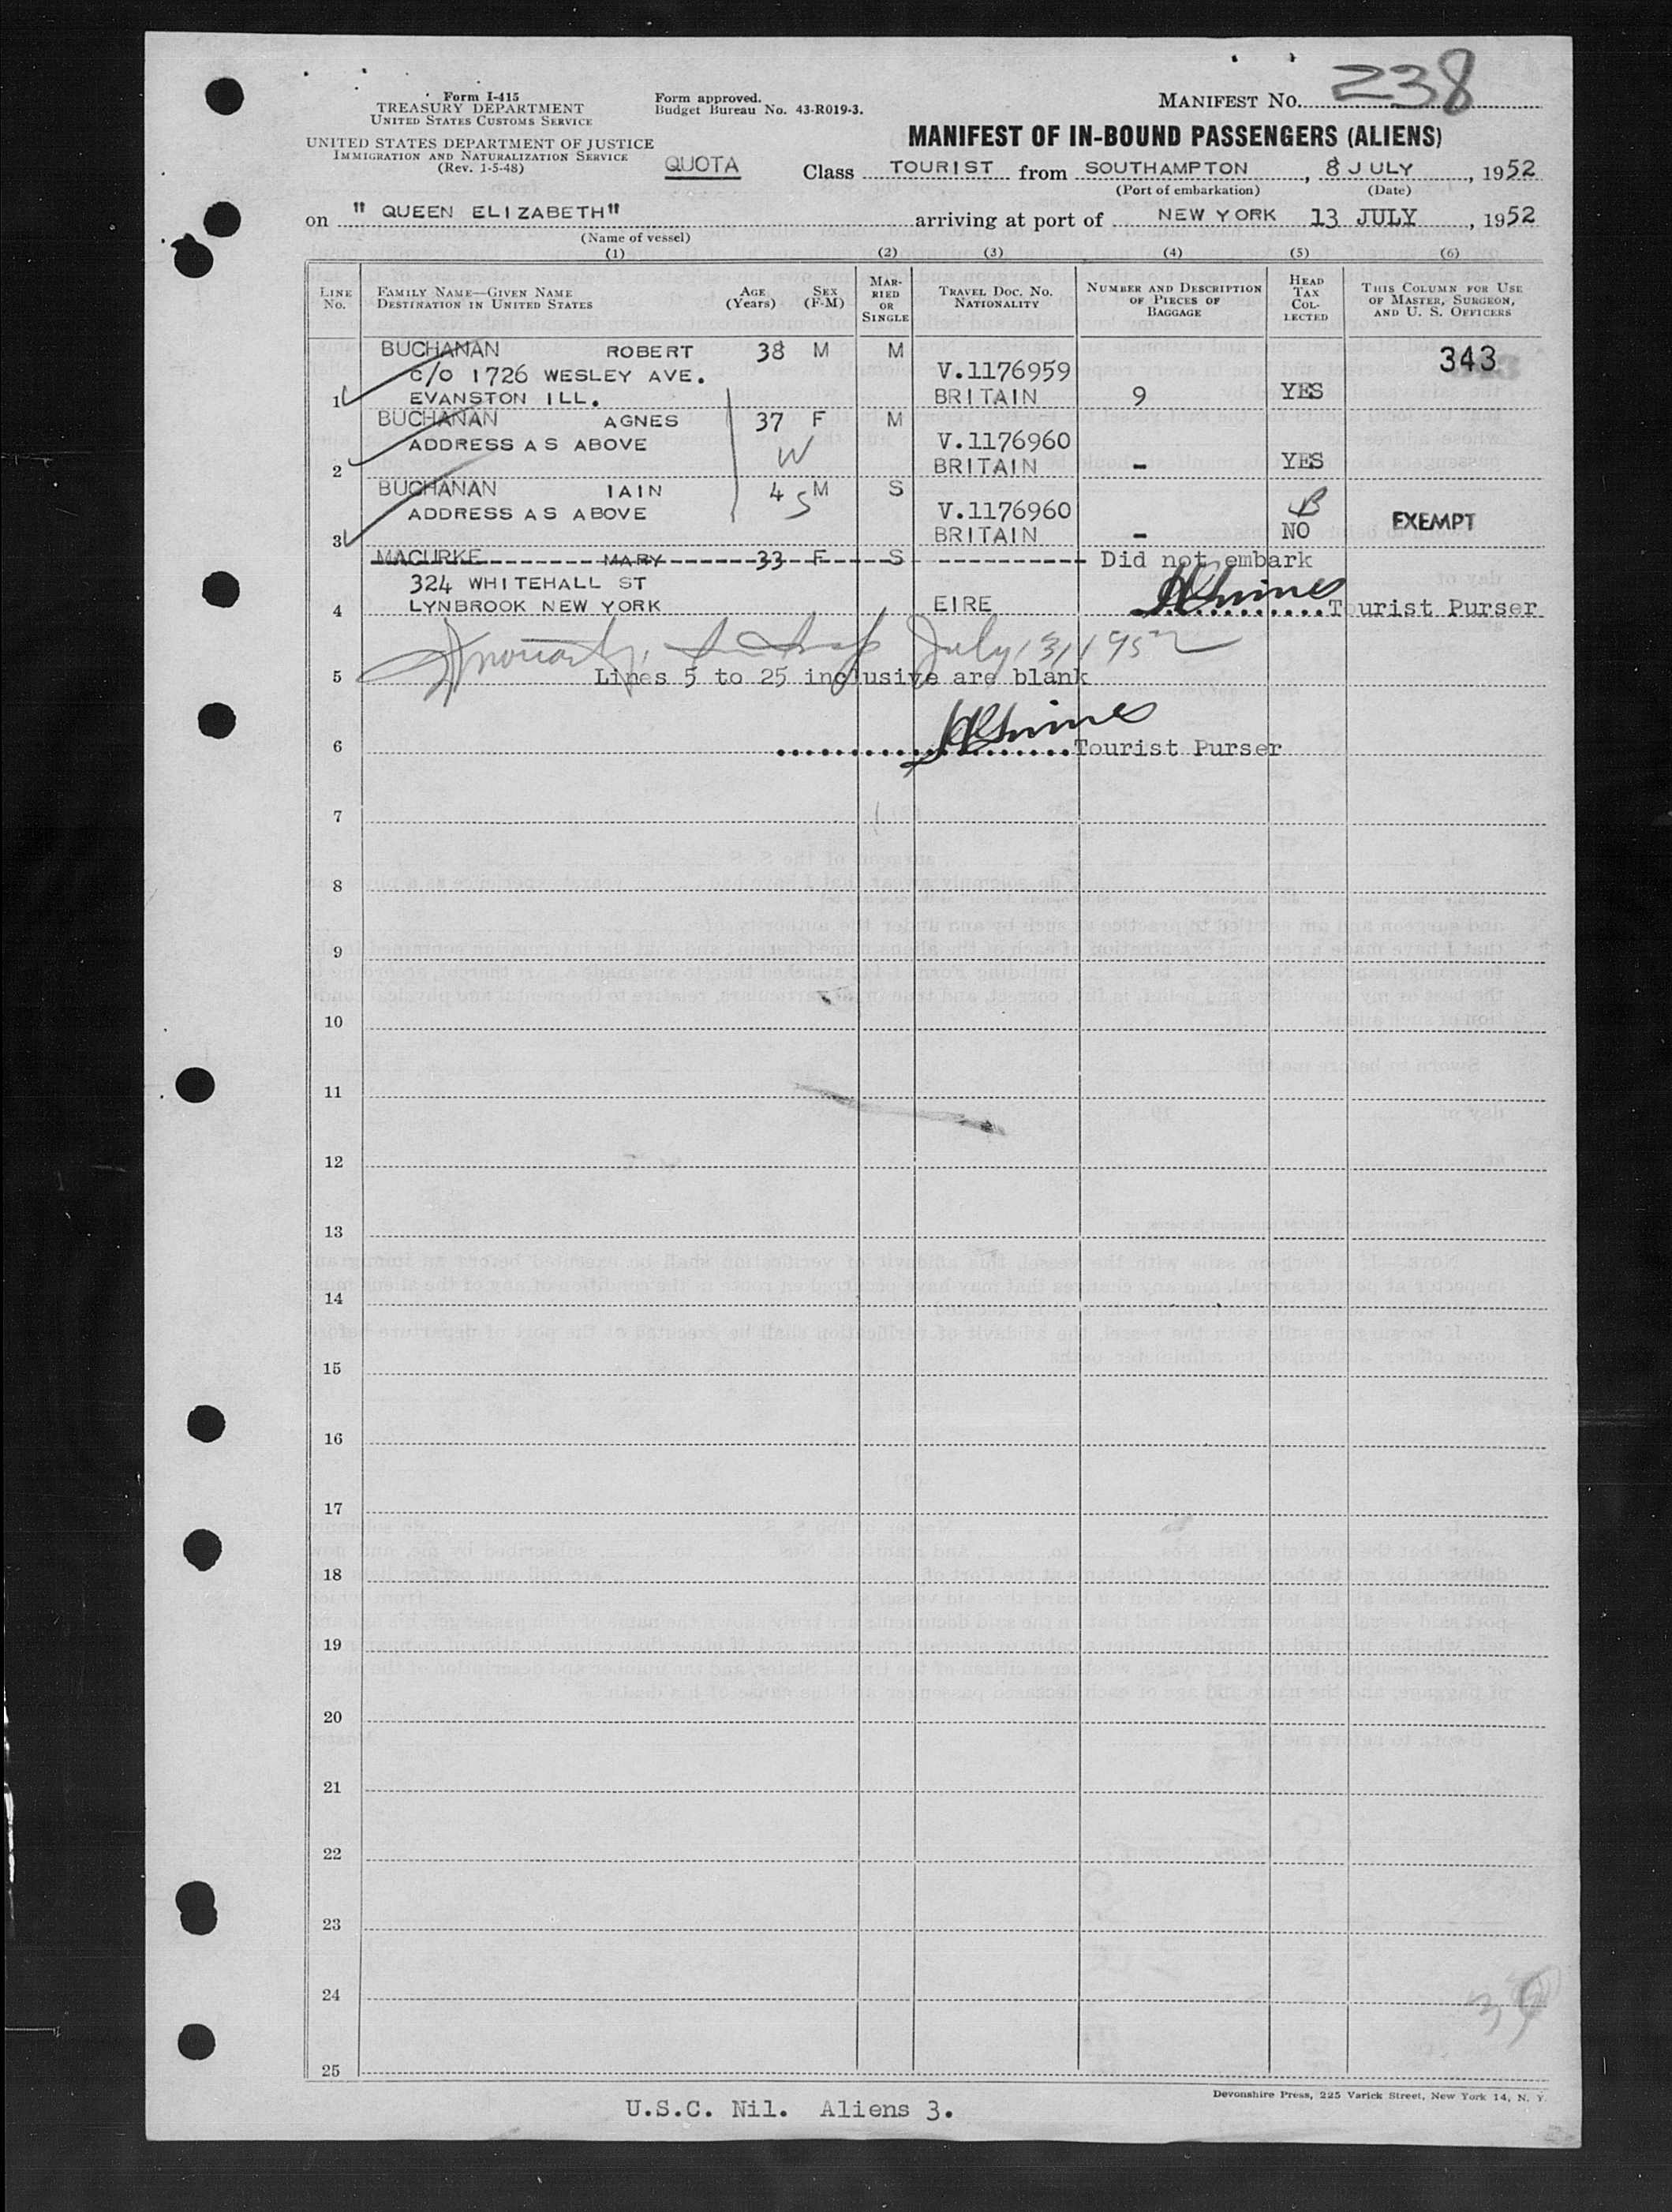 Form I-415
TREASURY DEPARTMENT
UNITED STATES CUSTOMS SERVICE
UNITED STATES DEPARTMENT OF JUSTICE
IMMIGRATION AND NATURALIZATION SERVICE
(Rev. 1-5-48)
Form approved.
Budget Bureau No. 43-R019-3.
QUOTA
MANIFEST NO. 238
MANIFEST OF IN-BOUND PASSENGERS (ALIENS)
Class TOURIST from SOUTHAMPTON, 8 JULY, 1952
(Port of embarkation) (Date)
on "QUEEN ELIZABETH" arriving at port of NEW YORK 13 JULY, 1952
(Name of vessel)
(1) (2) (3) (4) (5) (6)
LINE NO.
FAMILY NAME—GIVEN NAME
DESTINATION IN UNITED STATES
AGE (Years)
SEX (F-M)
MARRIED OR SINGLE
TRAVEL DOC. NO. NATIONALITY
NUMBER AND DESCRIPTION OF PIECES OF BAGGAGE
HEAD TAX COLLECTED
THIS COLUMN FOR USE OF MASTER, SURGEON, AND U. S. OFFICERS
BUCHANAN ROBERT 38 M M 343
C/O 1726 WESLEY AVE. V.1176959
1 EVANSTON ILL. BRITAIN 9 YES
BUCHANAN AGNES 37 F M
ADDRESS AS ABOVE W V.1176960
2 BRITAIN - YES
BUCHANAN IAIN 4 M S
ADDRESS AS ABOVE S V.1176960 EXEMPT
3 BRITAIN - NO
MACURKE MARY 33 F S Did not embark
324 WHITEHALL ST
4 LYNBROOK NEW YORK EIRE Tourist Purser
July 13, 1952
5 Lines 5 to 25 inclusive are blank
6 Tourist Purser
7
8
9
10
11
12
13
14
15
16
17
18
19
20
21
22
23
24
25
Devonshire Press, 225 Varick Street, New York 14, N. Y.
U.S.C. Nil. Aliens 3.